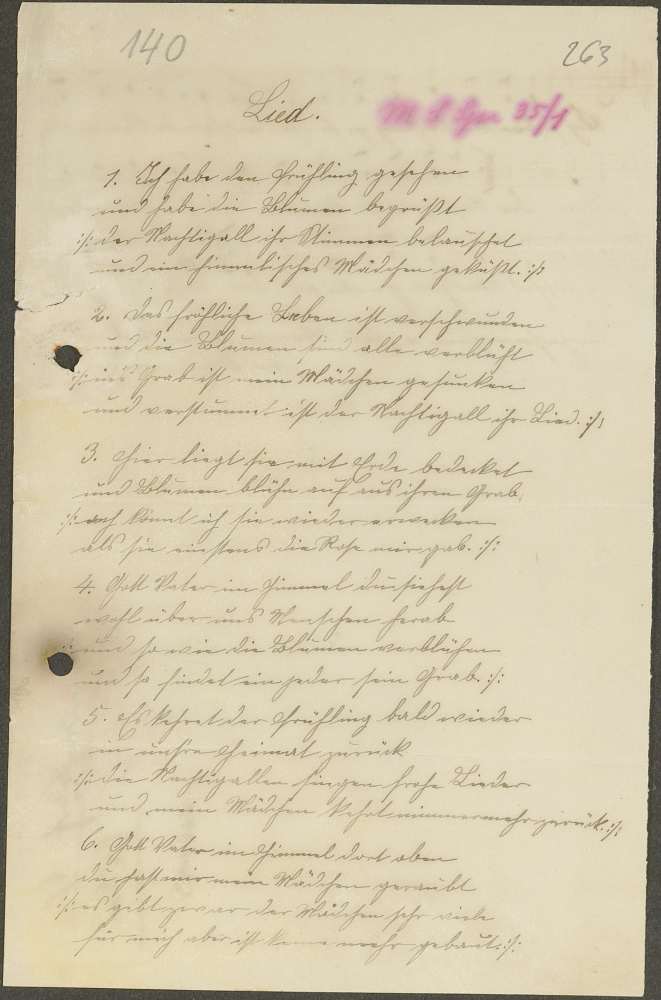 140
263
Lied.
M S Gen 35/1
1. Ich habe den Frühling gesehen
und habe die Blumen begrüßt
:/: Der Nachtigall ihr Stimmen belauschet
und ein himmlisches Mädchen geküßt. :/:
2. Das fröhliche Leben ist verschwunden
und die Blumen sind alle verblüht
:/: ins Grab ist mein Mädchen gesunken
und verstummt ist der Nachtigall ihr Lied. :/:
3. Hier liegt sie mit Erde bedecket
und Blumen blühn auf aus ihren Grab,
:/: ach könnt ich sie wieder erwecken
als sie einstens die Rose mir gab. :/:
4. Gott Vater im Himmel du siehest
wohl über uns Menschen herab
und so wie die Blumen verblühen
und so findet ein jeder sein Grab. :/:
5. Es kehret der Frühling bald wieder
in unsre Heimat zurück
:/: die Nachtigallen singen frohe Lieder
und mein Mädchen kehrt nimmermehr zurück. :/:
6. Gott Vater im Himmel dort oben
du hast mir mein Mädchen geraubt
:/: es gibt zwar der Mädchen sehr viele
für mich aber ist keine mehr gebaut. :/: